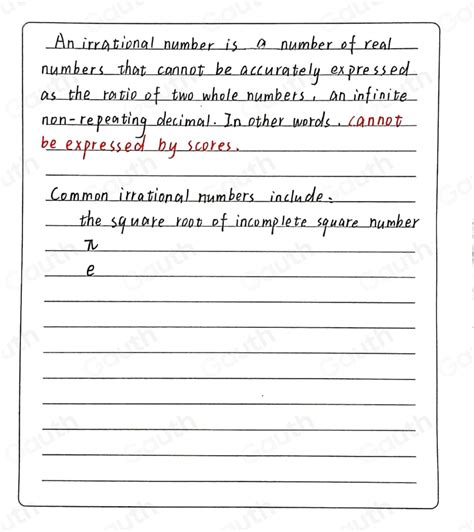 An irrational number is a number of real
numbers that cannot be accurately expressed
as the ratio of two whole numbers, an infinite
non-repeating decimal. In other words, cannot
be expressed by scores.
Common irrational numbers include:
the square root of incomplete square number
π
e